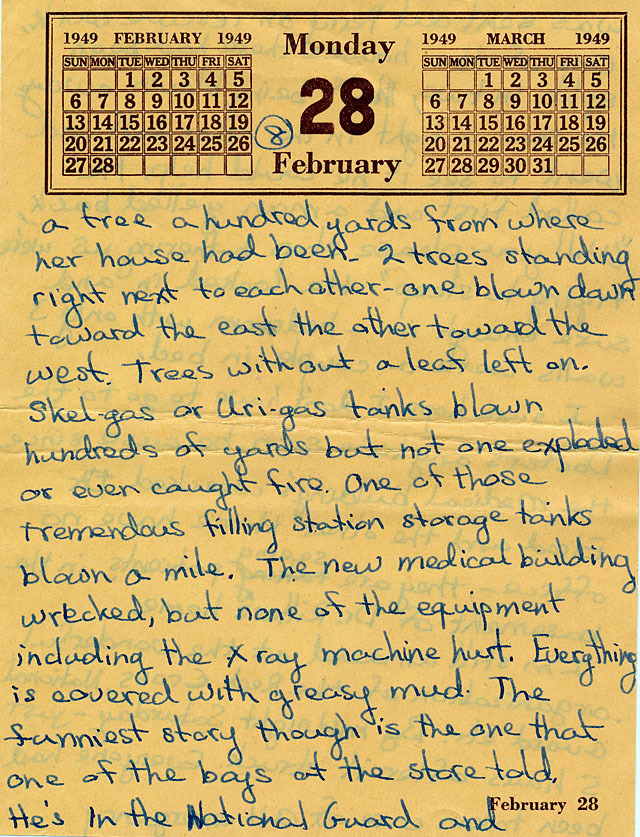 1949 FEBRUARY 1949
SUN MON TUE WED THU FRI SAT
1 2 3 4 5
6 7 8 9 10 11 12
13 14 15 16 17 18 19
20 21 22 23 24 25 26
27 28
Monday
28
February
8
1949 MARCH 1949
SUN MON TUE WED THU FRI SAT
1 2 3 4 5
6 7 8 9 10 11 12
13 14 15 16 17 18 19
20 21 22 23 24 25 26
27 28 29 30 31
a tree a hundred yards from where
her house had been - 2 trees standing
right next to each other - one blown down
toward the east the other toward the
west. Trees without a leaf left on.
Skel-gas or Uri-gas tanks blown
hundreds of yards but not one exploded
or even caught fire. One of those
tremendous filling station storage tanks
blown a mile. The new medical building
wrecked, but none of the equipment
including the X ray machine hurt. Everything
is covered with greasy mud. The
funniest story though is the one that
one of the boys at the store told.
He's in the National Guard and
February 28